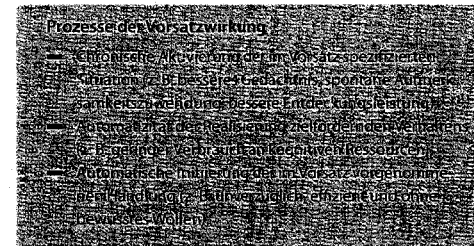 Prozesse der Vorsatzwirkung
— Chronische Aktivierung der im Vorsatz spezifizierten
Situation (z. B. besseres Gedächtnis, spontane Aufmerk-
samkeitszuwendung, bessere Entdeckungsleistung)
— Automatizität der Realisierung zielfördernden Verhaltens
(z. B. geringer Verbrauch an kognitiven Ressourcen)
— Automatische Initiierung der im Vorsatz vorgenomme-
nen Handlung (z. B. unverzüglich, effizient und ohne
bewusstes Wollen)